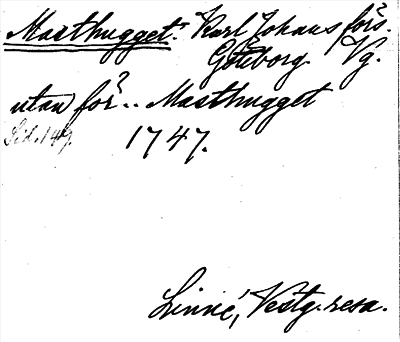 Masthugget. Karl Johans förs.
Göteborg Vg.
utan för .. Masthugget
Sid. 149. 1747.
Linné, Vestg. resa.